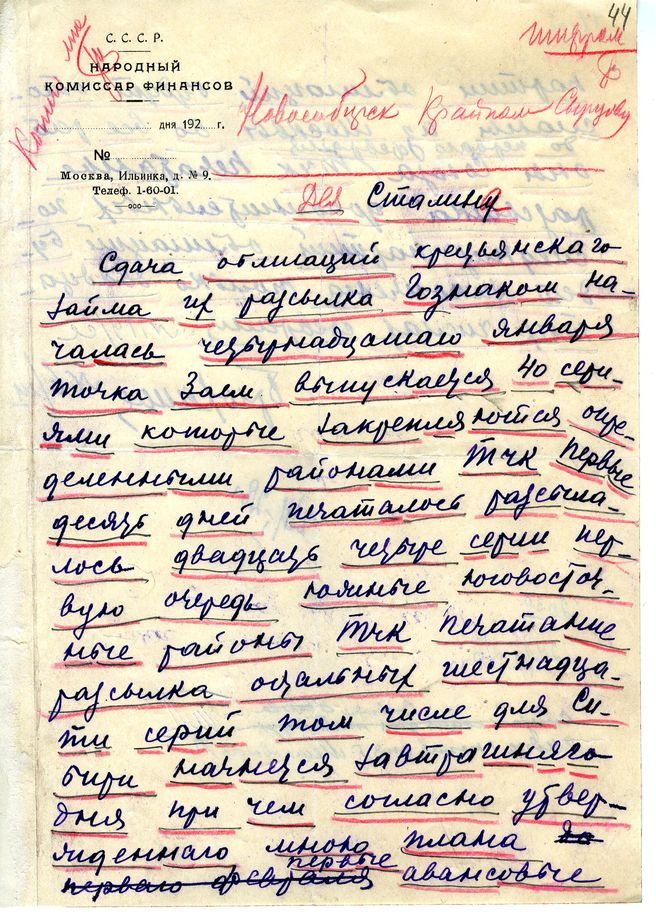 44
С. С. С. Р.
НАРОДНЫЙ
КОМИССАР ФИНАНСОВ
дня 192 г.
№
Москва, Ильинка, д. № 9.
Телеф. 1-60-01.
шифром
Новосибирск Крайком Сырцову
Для Сталина
Сдача облигаций крестьянскаго
займа их разсылка Гознаком на-
чалась четырнадцатаго января
точка Заем выпускается 40 сери-
ями которые закрепляются опре-
деленными районами Тчк Первые
десять дней печаталось разсыла-
лось двадцать четыре серии пер-
вую очередь южные юговосточ-
ные районы Тчк Печатание
разсылка остальных шестнадца-
ти серий том числе для Си-
бири начнется завтрашняго
дня при чем согласно утвер-
жденнаго мною плана до
перваго февраля первые авансовые